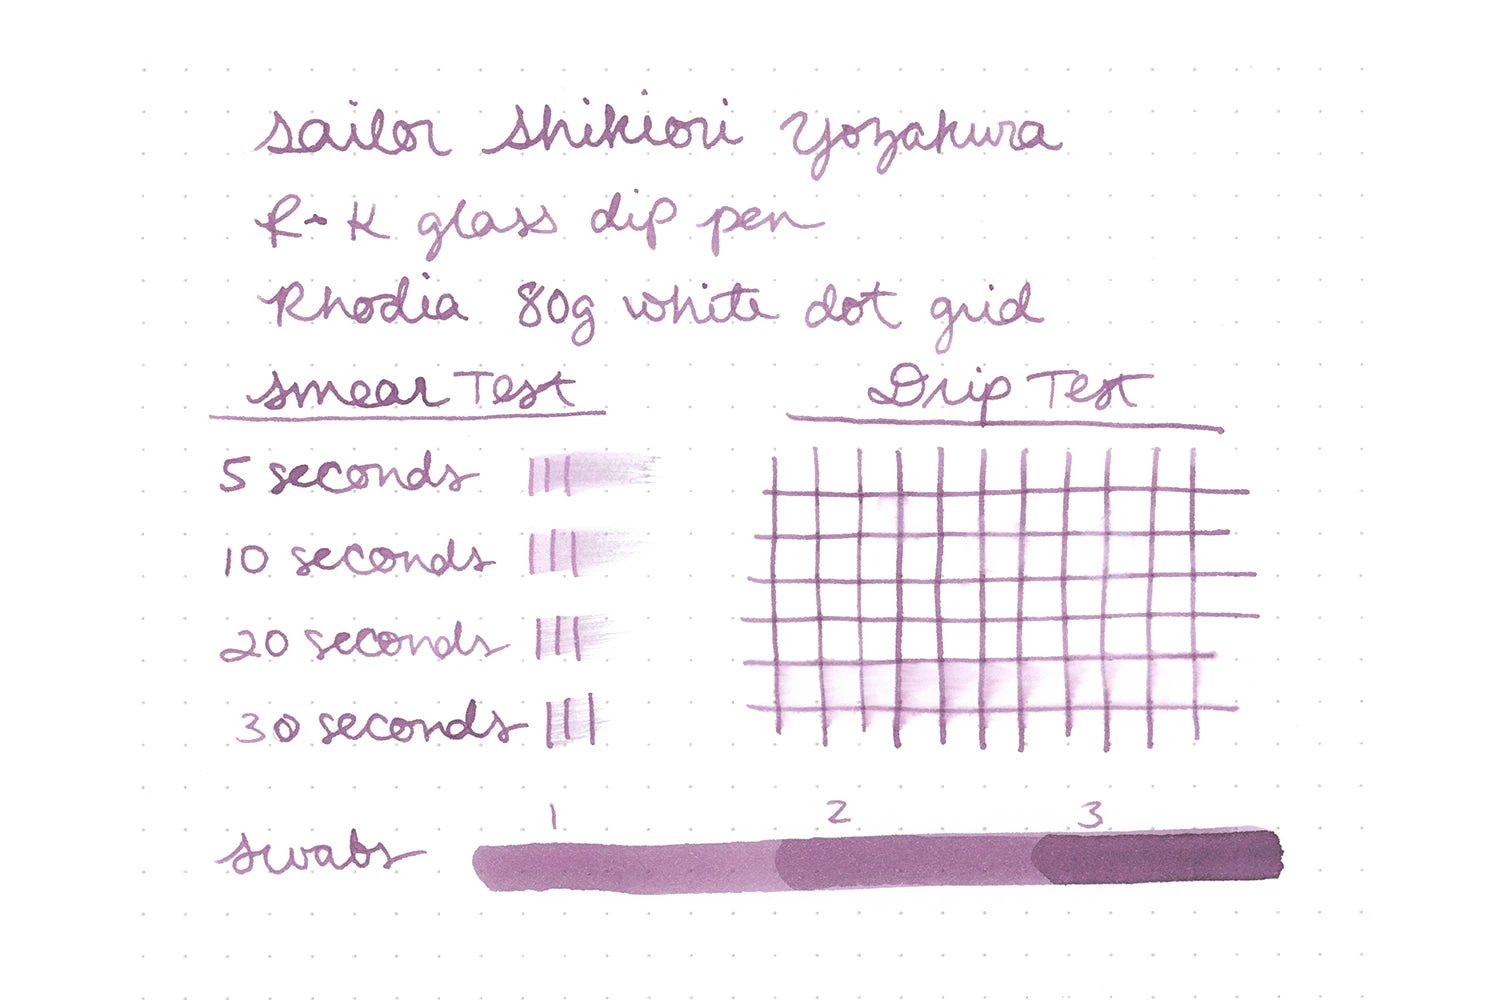 Sailor Shikiori Yozakura
R+K glass dip pen
Rhodia 80g white dot grid
Smear Test
5 seconds
10 seconds
20 seconds
30 seconds
Drip Test
1 2 3
swabs